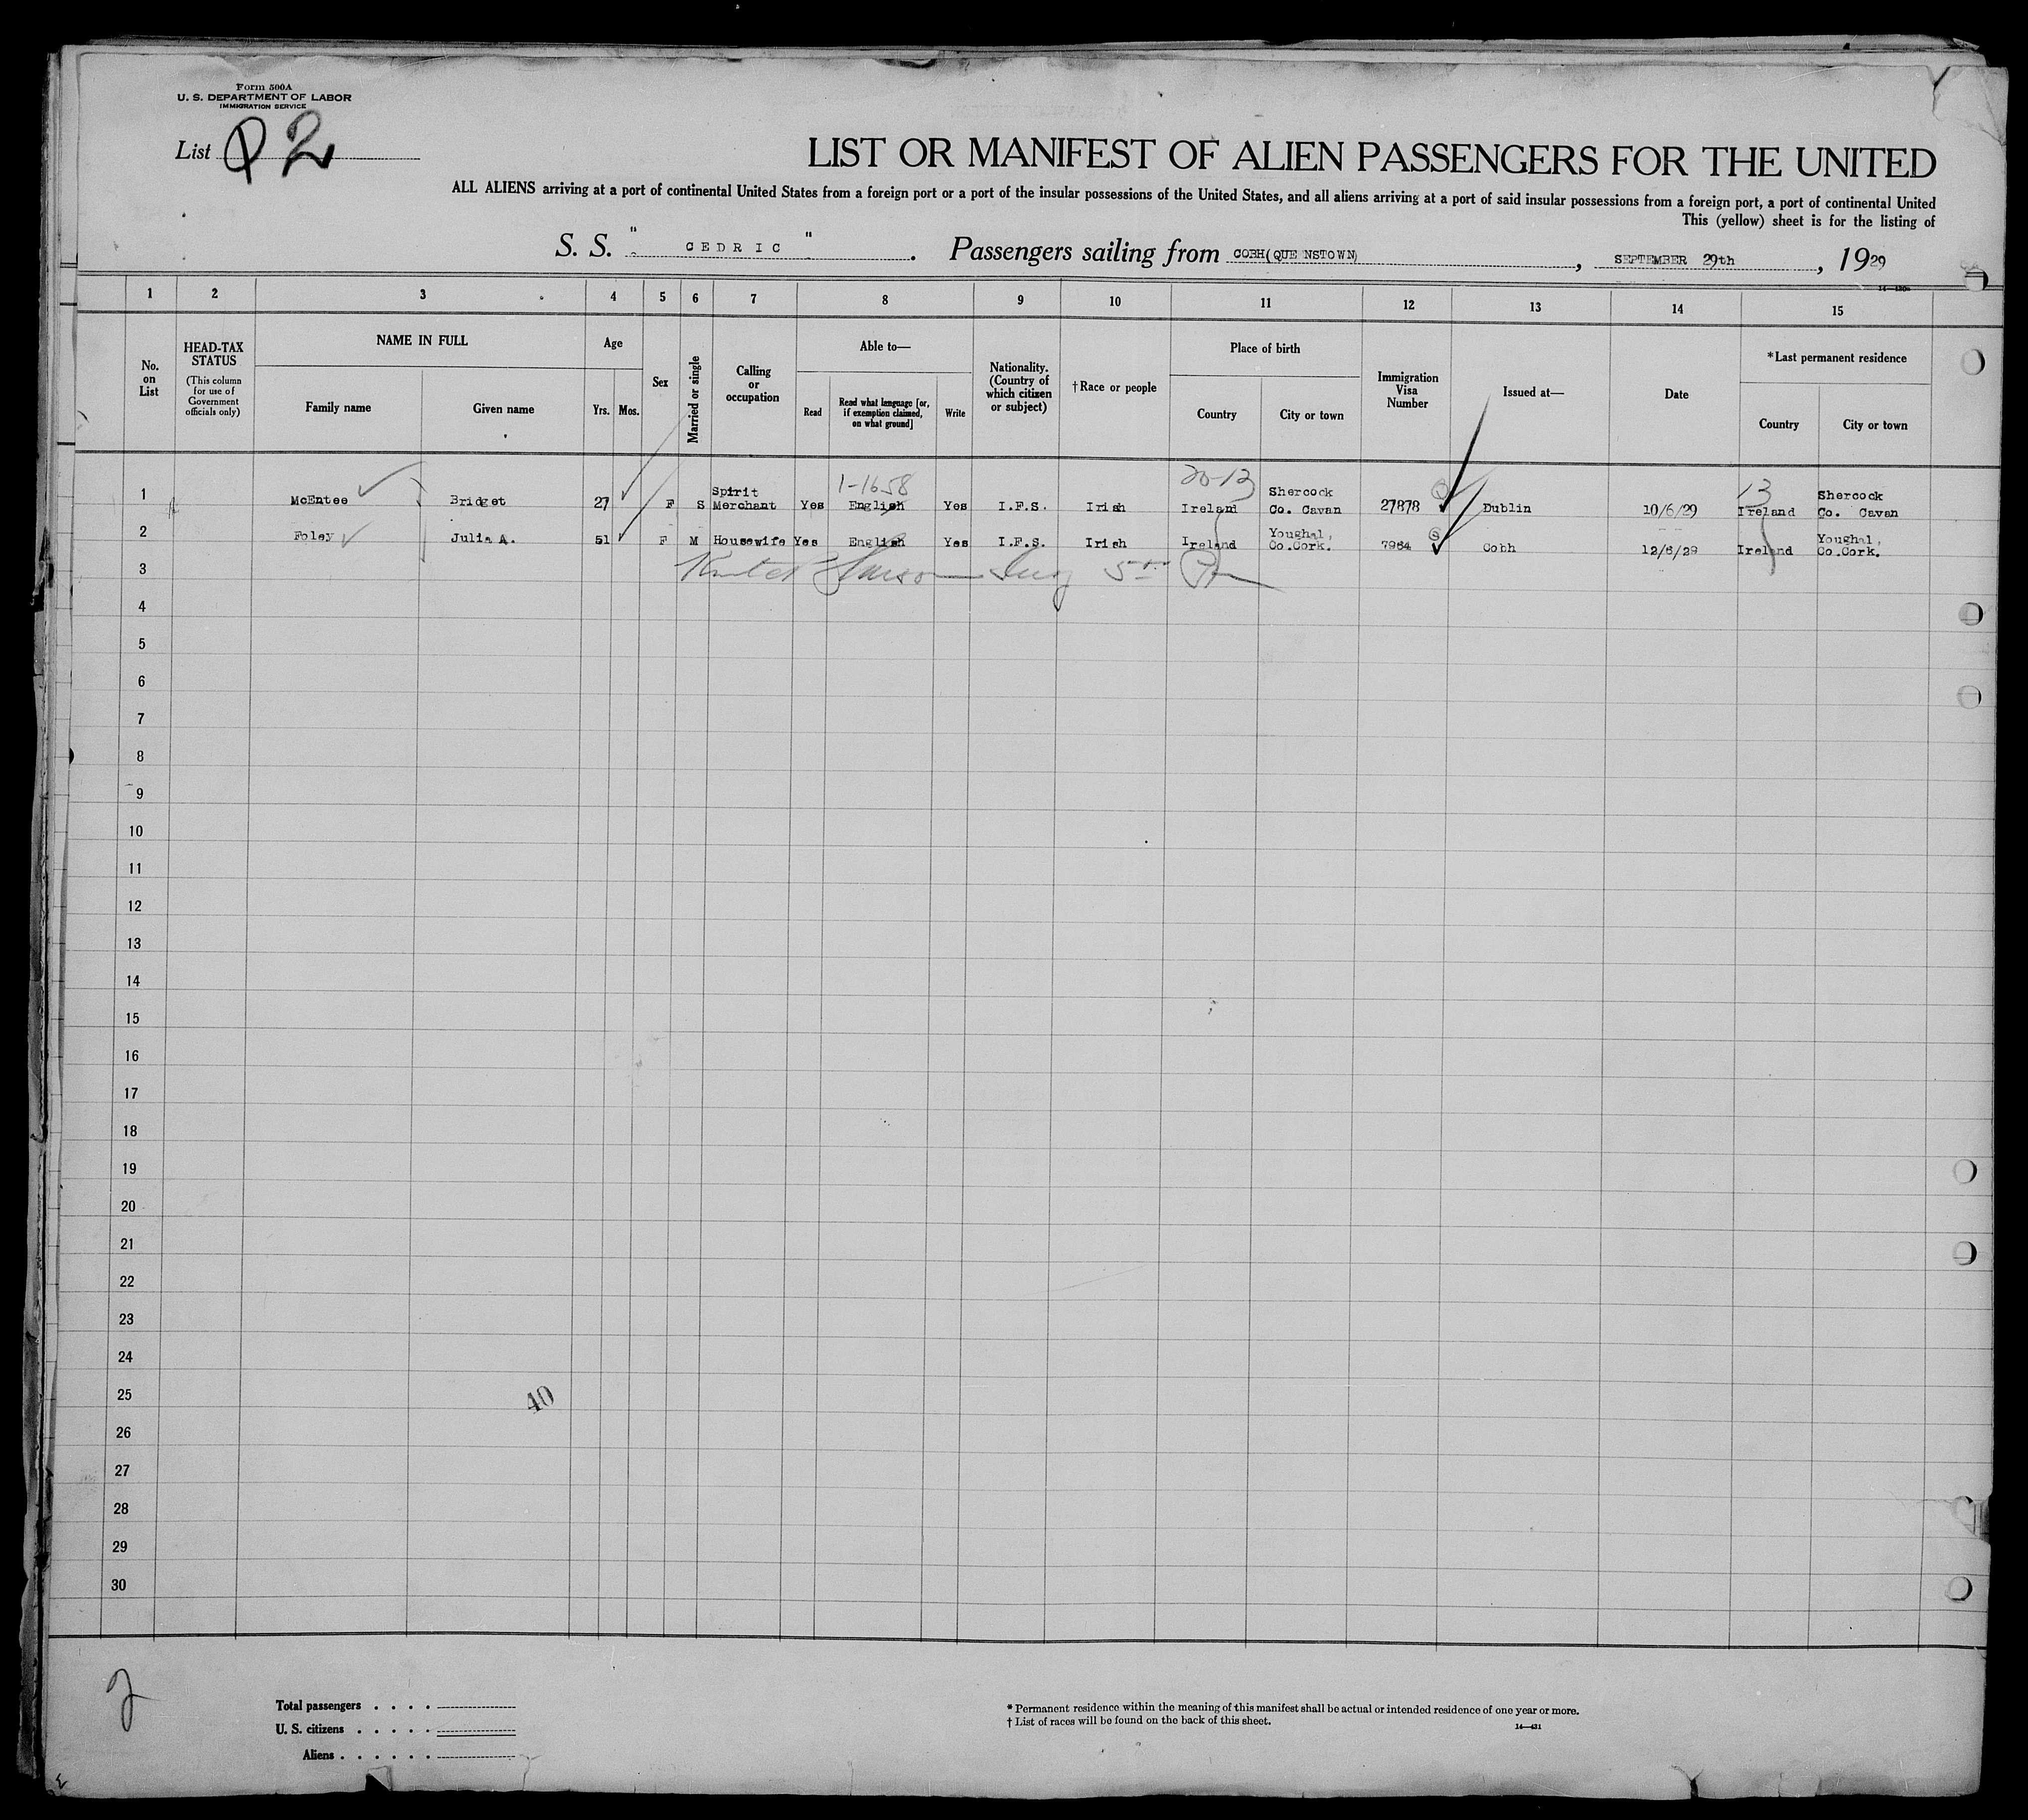 Form 500A
U. S. DEPARTMENT OF LABOR
IMMIGRATION SERVICE
List 2
LIST OR MANIFEST OF ALIEN PASSENGERS FOR THE UNITED
ALL ALIENS arriving at a port of continental United States from a foreign port or a port of the insular possessions of the United States, and all aliens arriving at a port of said insular possessions from a foreign port, a port of continental United
This (yellow) sheet is for the listing of
S. S. " CEDRIC " . Passengers sailing from COBH(QUE NSTOWN) , SEPTEMBER 29th , 1929
1 2 3 4 5 6 7 8 9 10 11 12 13 14 15
No. on List
HEAD-TAX STATUS
(This column for use of Government officials only)
NAME IN FULL
Family name
Given name
Age
Yrs.
Mos.
Sex
Married or single
Calling or occupation
Able to—
Read
Read what language [or, if exemption claimed, on what ground]
Write
Nationality. (Country of which citizen or subject)
†Race or people
Place of birth
Country
City or town
Immigration Visa Number
Issued at—
Date
*Last permanent residence
Country
City or town
1-1658 20-13 13
1 McEntee Bridget 27 F S Spirit Merchant Yes English Yes I.F.S. Irish Ireland Shercock Co. Cavan 27878 Dublin 10/6/29 Ireland Shercock Co. Cavan
2 Foley Julia A. 51 F M Housewife Yes English Yes I.F.S. Irish Ireland Youghal, Co.Cork. 7964 Cobh 12/6/29 Ireland Youghal, Co.Cork.
3
4
5
6
7
8
9
10
11
12
13
14
15
16
17
18
19
20
21
22
23
24
25
40
26
27
28
29
30
2
Total passengers . . . .
U. S. citizens . . . . .
Aliens . . . . . .
* Permanent residence within the meaning of this manifest shall be actual or intended residence of one year or more.
† List of races will be found on the back of this sheet.
14—431